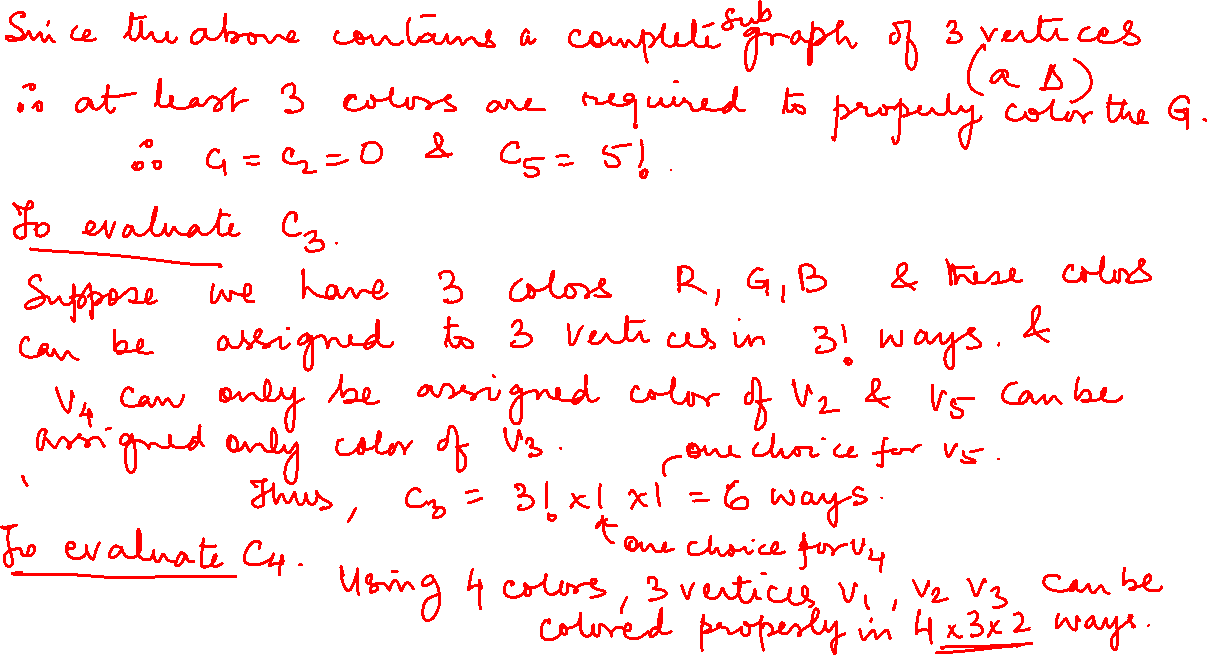 Since the above contains a complete subgraph of 3 vertices
(a Δ)
∴ at least 3 colors are required to properly color the G.
∴ C₁ = C₂ = 0 & C₅ = 5!.
To evaluate C₃.
Suppose we have 3 colors R, G, B & these colors
can be assigned to 3 vertices in 3! ways. &
V₄ can only be assigned color of V₂ & V₅ can be
assigned only color of V₃.
one choice for V₅.
Thus, C₃ = 3! x 1 x 1 = 6 ways.
one choice for V₄
To evaluate C₄.
Using 4 colors, 3 vertices V₁, V₂ V₃ can be
colored properly in 4x3x2 ways.